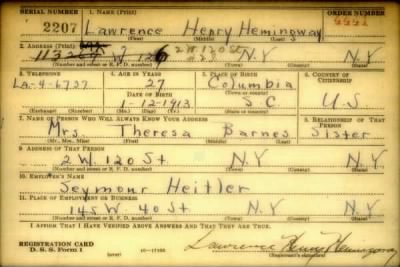 SERIAL NUMBER 1. NAME (Print) ORDER NUMBER
2207 Lawrence Henry Hemingway
2. ADDRESS (Print) 2 W. 120 St
113 W. 126 #23 N.Y N.Y
(Number and street or R. F. D. number) (Town) (County) (State)
3. TELEPHONE 4. AGE IN YEARS 5. PLACE OF BIRTH 6. COUNTRY OF CITIZENSHIP
LA-4-6737 27 Columbia
DATE OF BIRTH (Town or county)
1-12-1913 S C U.S
(Exchange) (Number) (Mo.) (Day) (Yr.) (State or country)
7. NAME OF PERSON WHO WILL ALWAYS KNOW YOUR ADDRESS 8. RELATIONSHIP OF THAT PERSON
Mrs. Theresa Barnes Sister
(Mr., Mrs., Miss) (First) (Middle) (Last)
9. ADDRESS OF THAT PERSON
2 W. 120 St N.Y N.Y
(Number and street or R. F. D. number) (Town) (County) (State)
10. EMPLOYER'S NAME
Seymour Heitler
11. PLACE OF EMPLOYMENT OR BUSINESS
145 W 40 St N.Y N.Y
(Number and street or R. F. D. number) (Town) (County) (State)
I AFFIRM THAT I HAVE VERIFIED ABOVE ANSWERS AND THAT THEY ARE TRUE.
REGISTRATION CARD
D. S. S. Form 1 (over) Lawrence Henry Hemingway
(Registrant's signature)